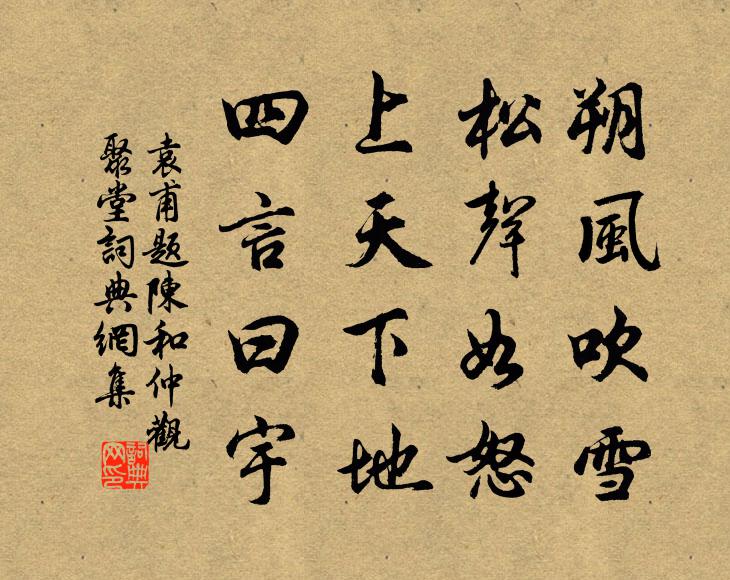 朔風吹雪
松聲如怒
上天下地
四言曰宇
袁甫題陳和仲觀
聚堂詞典網集
詞典网印